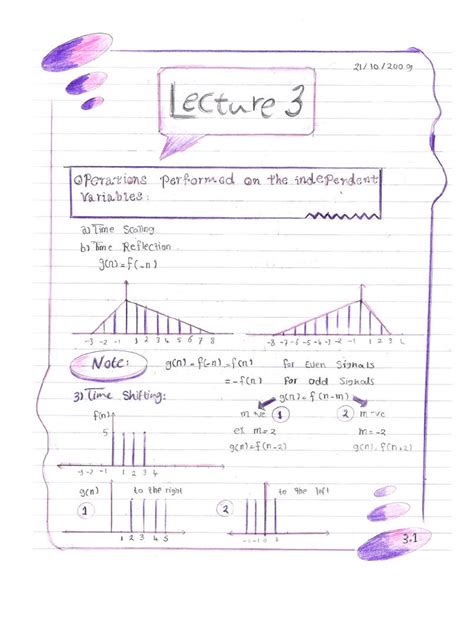 21/10/2009
Lecture 3
Operations performed on the independent
Variables:
a) Time Scaling
b) Time Reflection
g(n) = f(-n)
-3 -2 -1 1 2 3 4 5 6 7 8
-8 -7 -6 -5 -4 -3 -2 -1 1 2 3
Note: g(n) = f(-n) = f(n) for Even Signals
= -f(n) for odd Signals
3) Time Shifting: g(n) = f(n-m)
m +ve 1 2 m -ve
ex m = 2 m = -2
g(n) = f(n-2) g(n) = f(n+2)
f(n)
5
-3 -2 -1 1 2 3 4
g(n) to the right
1
1 2 3 4 5
to the left
2
-2 -1 0 1
3.1